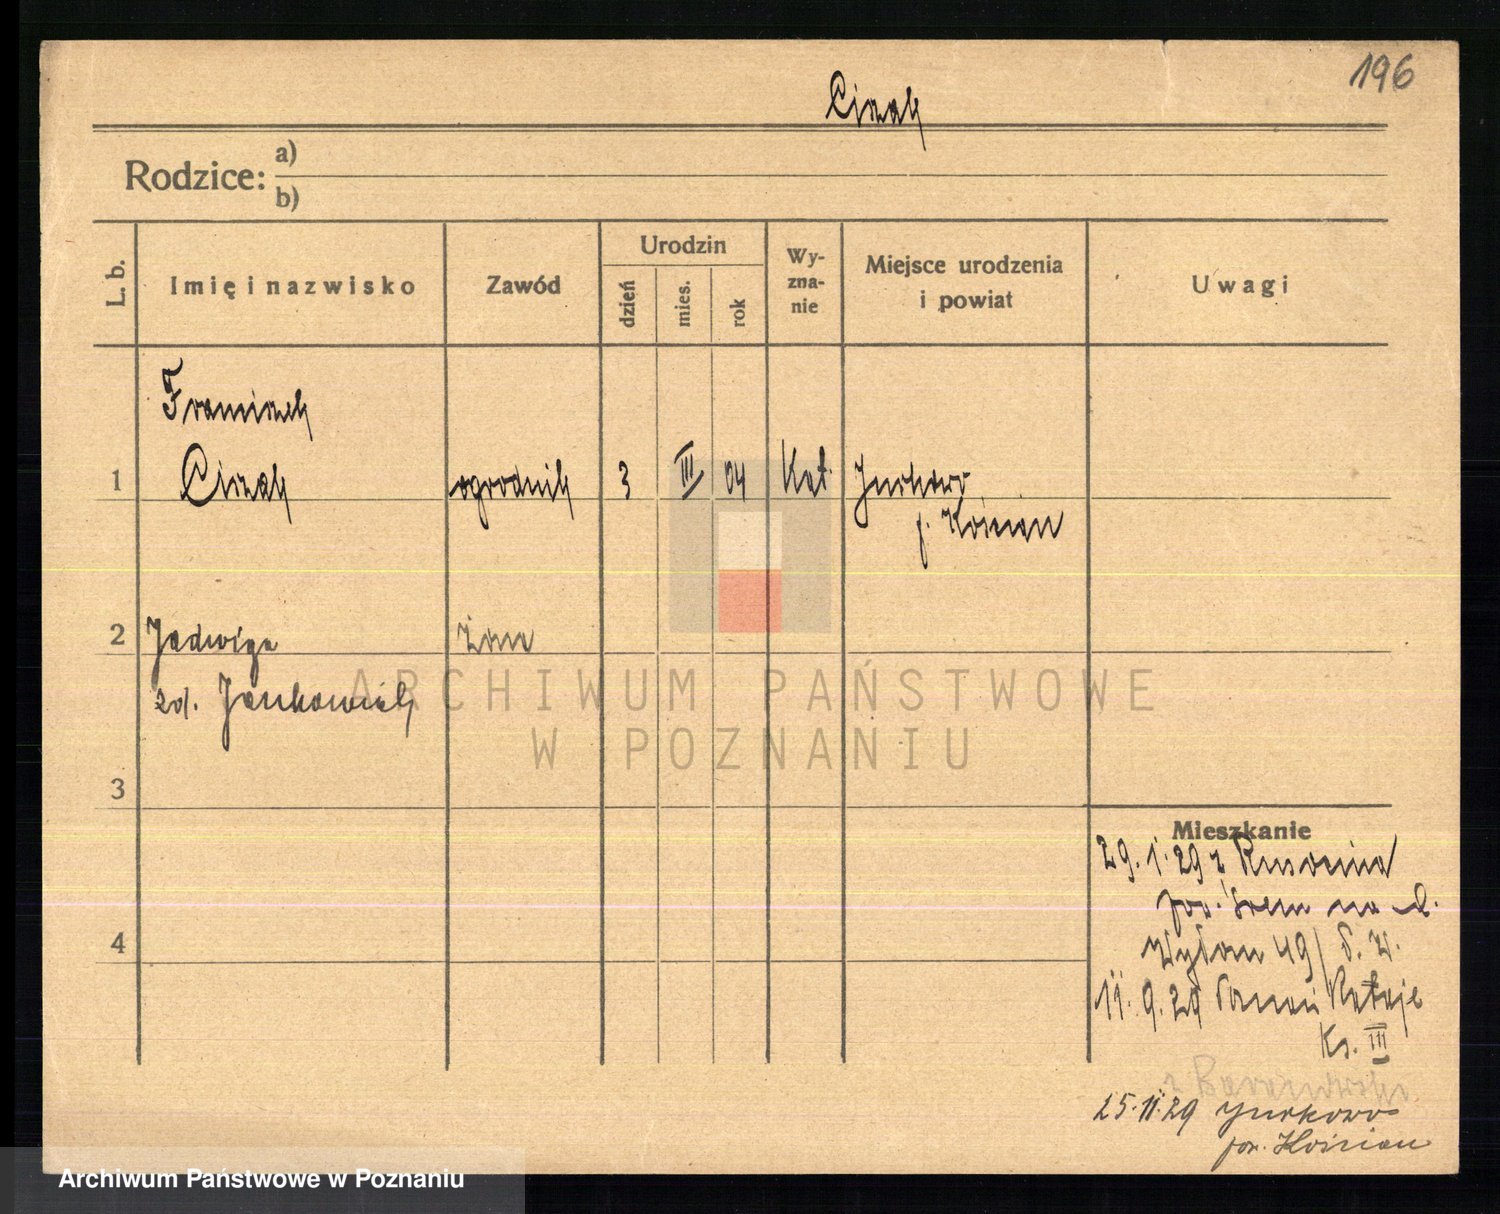 196
Cizak
Rodzice: a)
b)
L. b.
Imię i nazwisko
Zawód
Urodzin
dzień
mies.
rok
Wy-
zna-
nie
Miejsce urodzenia
i powiat
Uwagi
Franciszek
1 Cizak ogrodnik 3 III 04 Kat. Jurkowo
p. Kościan
2 Jadwiga żona
zd. Jankowiak
ARCHIWUM PAŃSTWOWE
W POZNANIU
3
Mieszkanie
29.1.29 z
pow. Śrem na
4
49
11.9.29 Poznań Rataje
Ks. III
25.11.29 Jurkowo
pow. Kościan
Archiwum Państwowe w Poznaniu